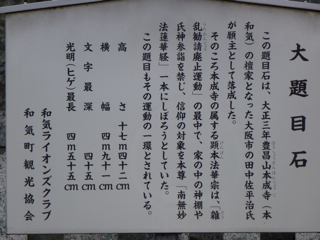 大題目石
この題目石は、大正三年豊昌山本成寺（本
和気）の檀家となった大阪市の田中佐平治氏
が願主として落成した。
そのころ本成寺の属する顕本法華宗は、「雑
乱勧請廃止運動」の最中で、家の中の神棚や
氏神参詣を禁じ、信仰の対象を本尊「南無妙
法蓮華経」一本にしぼろうとしていた。
この題目もその運動の一環とされている。
高さ 十七m四十二cm
横幅 四m九十一cm
文字最深 四十五cm
光明（ヒゲ）最長 四m五十五cm
和気ライオンズクラブ
和気町観光協会